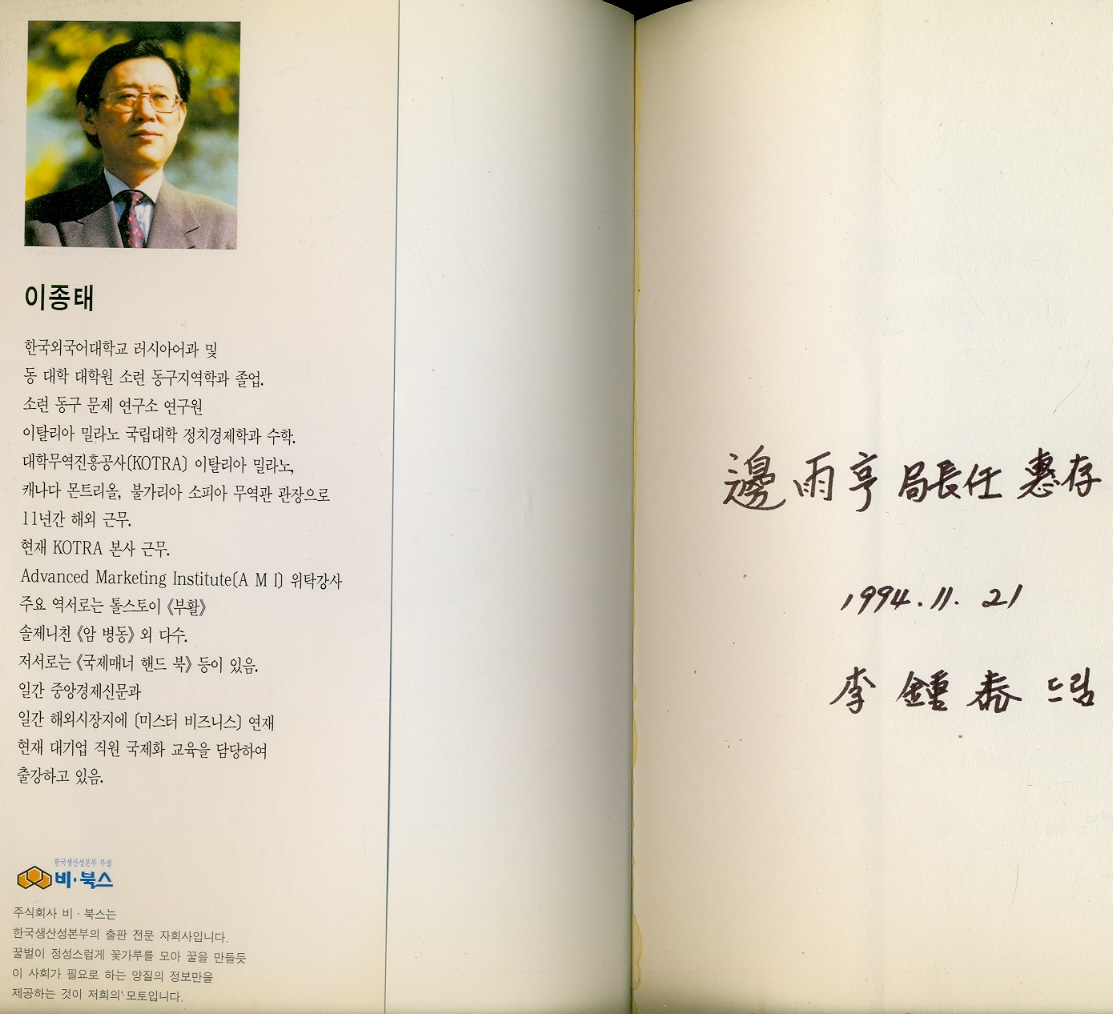 이종태
한국외국어대학교 러시아어과 및
동 대학 대학원 소련 동구지역학과 졸업.
소련 동구 문제 연구소 연구원
이탈리아 밀라노 국립대학 정치경제학과 수학.
대학무역진흥공사(KOTRA) 이탈리아 밀라노,
캐나다 몬트리올, 불가리아 소피아 무역관 관장으로
11년간 해외 근무.
현재 KOTRA 본사 근무.
Advanced Marketing Institute(A M I) 위탁강사
주요 역서로는 톨스토이 《부활》
솔제니친 《암 병동》 외 다수.
저서로는 《국제매너 핸드 북》 등이 있음.
일간 중앙경제신문과
일간 해외시장지에 (미스터 비즈니스) 연재
현재 대기업 직원 국제화 교육을 담당하여
출강하고 있음.
한국생산성본부 부설
비·북스
주식회사 비·북스는
한국생산성본부의 출판 전문 자회사입니다.
꿀벌이 정성스럽게 꽃가루를 모아 꿀을 만들듯
이 사회가 필요로 하는 양질의 정보만을
제공하는 것이 저희의 모토입니다.
邊雨亨 局長任 惠存
1994. 11. 21
李鍾泰 드림